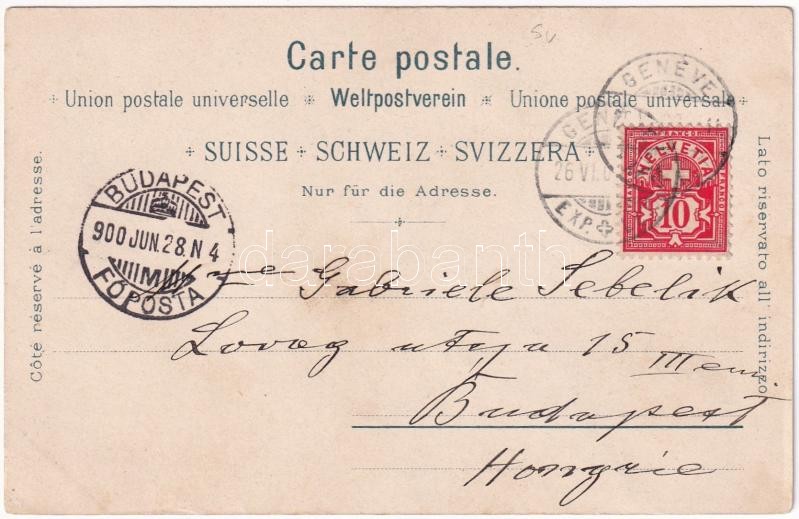 Carte postale.
Union postale universelle * Weltpostverein * Unione postale universale
SUISSE + SCHWEIZ + SVIZZERA
Nur für die Adresse.
Côté réservé à l'adresse.
Lato riservato all' indirizzo
GENÈVE
GENÈVE
26 VI
EXP.
FRANCO
HELVETIA
10
BUDAPEST
900 JUN. 28. N 4
M
FŐPOSTA
darabanth
Mme Gabriele Sebelik
Lovag utcza 15 III em
Budapest
Hongrie